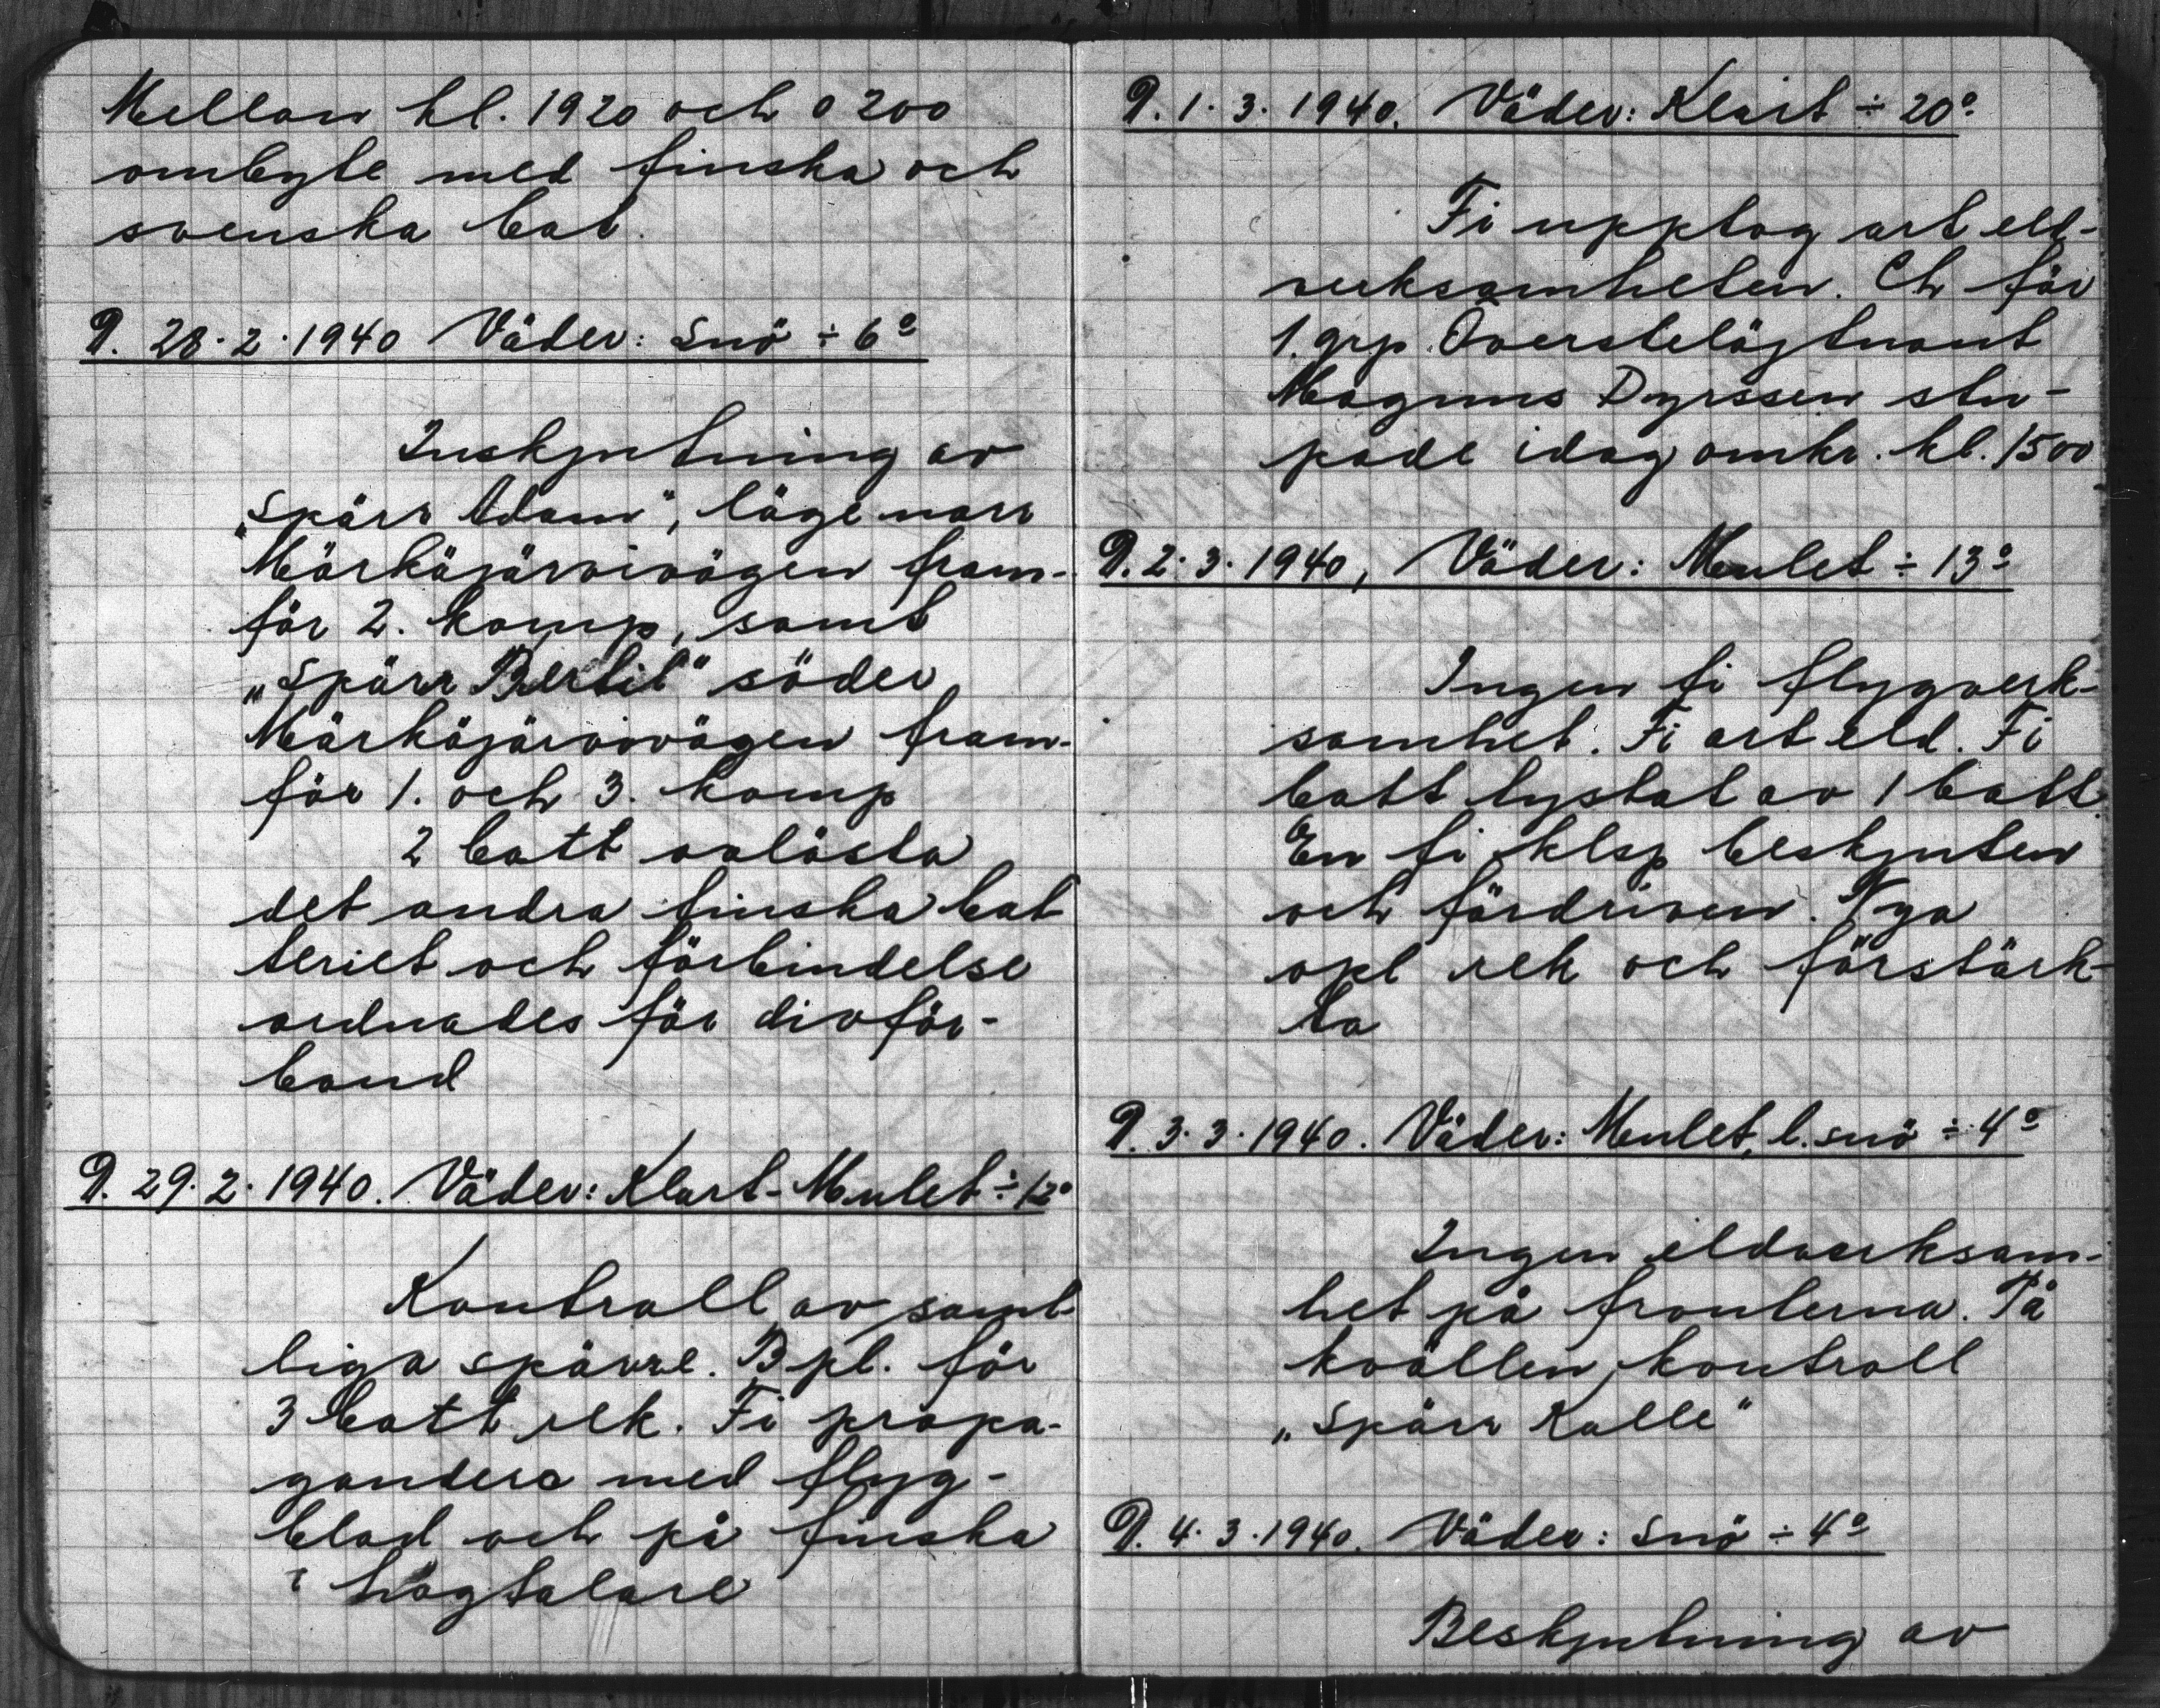 Mellan kl. 1920 och 0200
ombyte med finska och
svenska bat.
D. 28.2.1940 Väder: Snö ÷ 6°
Inskjutning av
„Spärr Adam", läge norr
Märkäjärvivägen fram-
för 2. komp, samt
„Spärr Bertil" söder
Märkäjärvivägen fram-
för 1. och 3. komp
2 batt avlösta
det andra finska bat
teriet och förbindelse
ordnades för divför-
band
D. 29.2.1940. Väder: Klart-Mulet ÷ 12°
Kontroll av samt
liga spärrar. B pl. för
3 batt rek. Fi propa-
gandera med flyg-
blad och på finska
i högtalare
D. 1.3.1940. Väder: Klart ÷ 20°
Fi upptog art eld-
verksamheten. Ch för
1. grp. Överstelöjtnant
Magnus Dyrssen stu-
pade idag omkr. kl. 1500
D. 2.3.1940, Väder: Mulet ÷ 13°
Ingen fi flygverk-
samhet. Fi art eld. Fi
batt tystat av 1 batt.
En fi klsp beskjuten
och fördriven. Nya
opl rek och förstärk-
ta
D. 3.3.1940. Väder: Mulet, l. snö ÷ 4°
Ingen eldverksam-
het på fronterna. På
kvällen kontroll
„Spärr Kalle"
D. 4.3.1940. Väder: Snö ÷ 4°
Beskjutning av